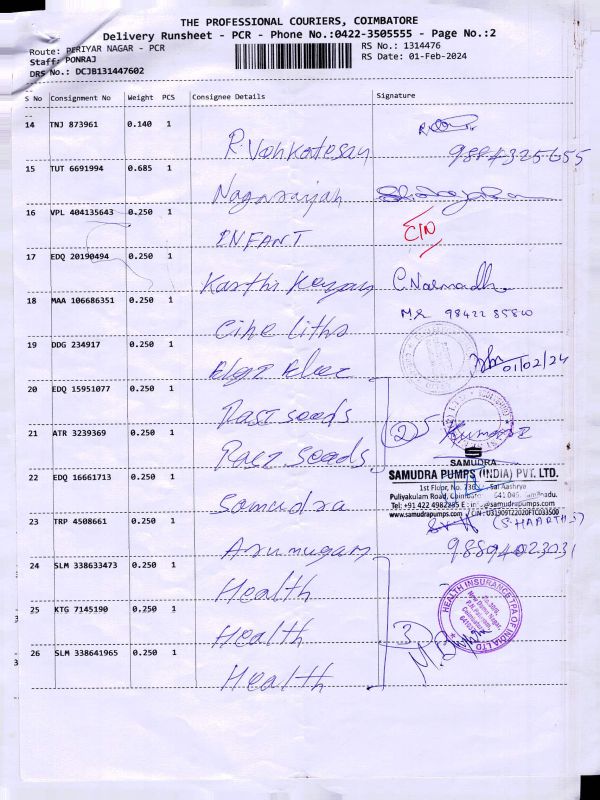 THE PROFESSIONAL COURIERS, COIMBATORE
Delivery Runsheet - PCR - Phone No.:0422-3505555 - Page No.:2
Route: PERIYAR NAGAR - PCR
RS No.: 1314476
Staff: PONRAJ
RS Date: 01-Feb-2024
DRS No.: DCJB131447602
S No Consignment No Weight PCS Consignee Details Signature
14 TNJ 873961 0.140 1
R. Venkatesan
15 TUT 6691994 0.685 1
Nagarajah
16 VPL 404135643 0.250 1
INFANT
17 EDQ 20190494 0.250 1
Karthi C. Narmadha
18 MAA 106686351 0.250 1
M.R 98422 85810
Cine
19 DDG 234917 0.250 1
Elgi Elec 01/02/24
20 EDQ 15951077 0.250 1
Rasi seeds
21 ATR 3239369 0.250 1
2
Rasi seeds
SAMUDRA
22 EDQ 16661713 0.250 1
SAMUDRA PUMPS (INDIA) PVT. LTD.
1st Floor, No. Sai Aashrya
Puliyakulam Road, 641 045
Tel: +91 422 E: info@samudrapumps.com
www.samudrapumps.com
Samudra
23 TRP 4508661 0.250 1
Arumugam
24 SLM 338633473 0.250 1
Health
HEALTH INSURANCE TPA OF INDIA LTD
25 KTG 7145190 0.250 1
Health
3
26 SLM 338641965 0.250 1
Health